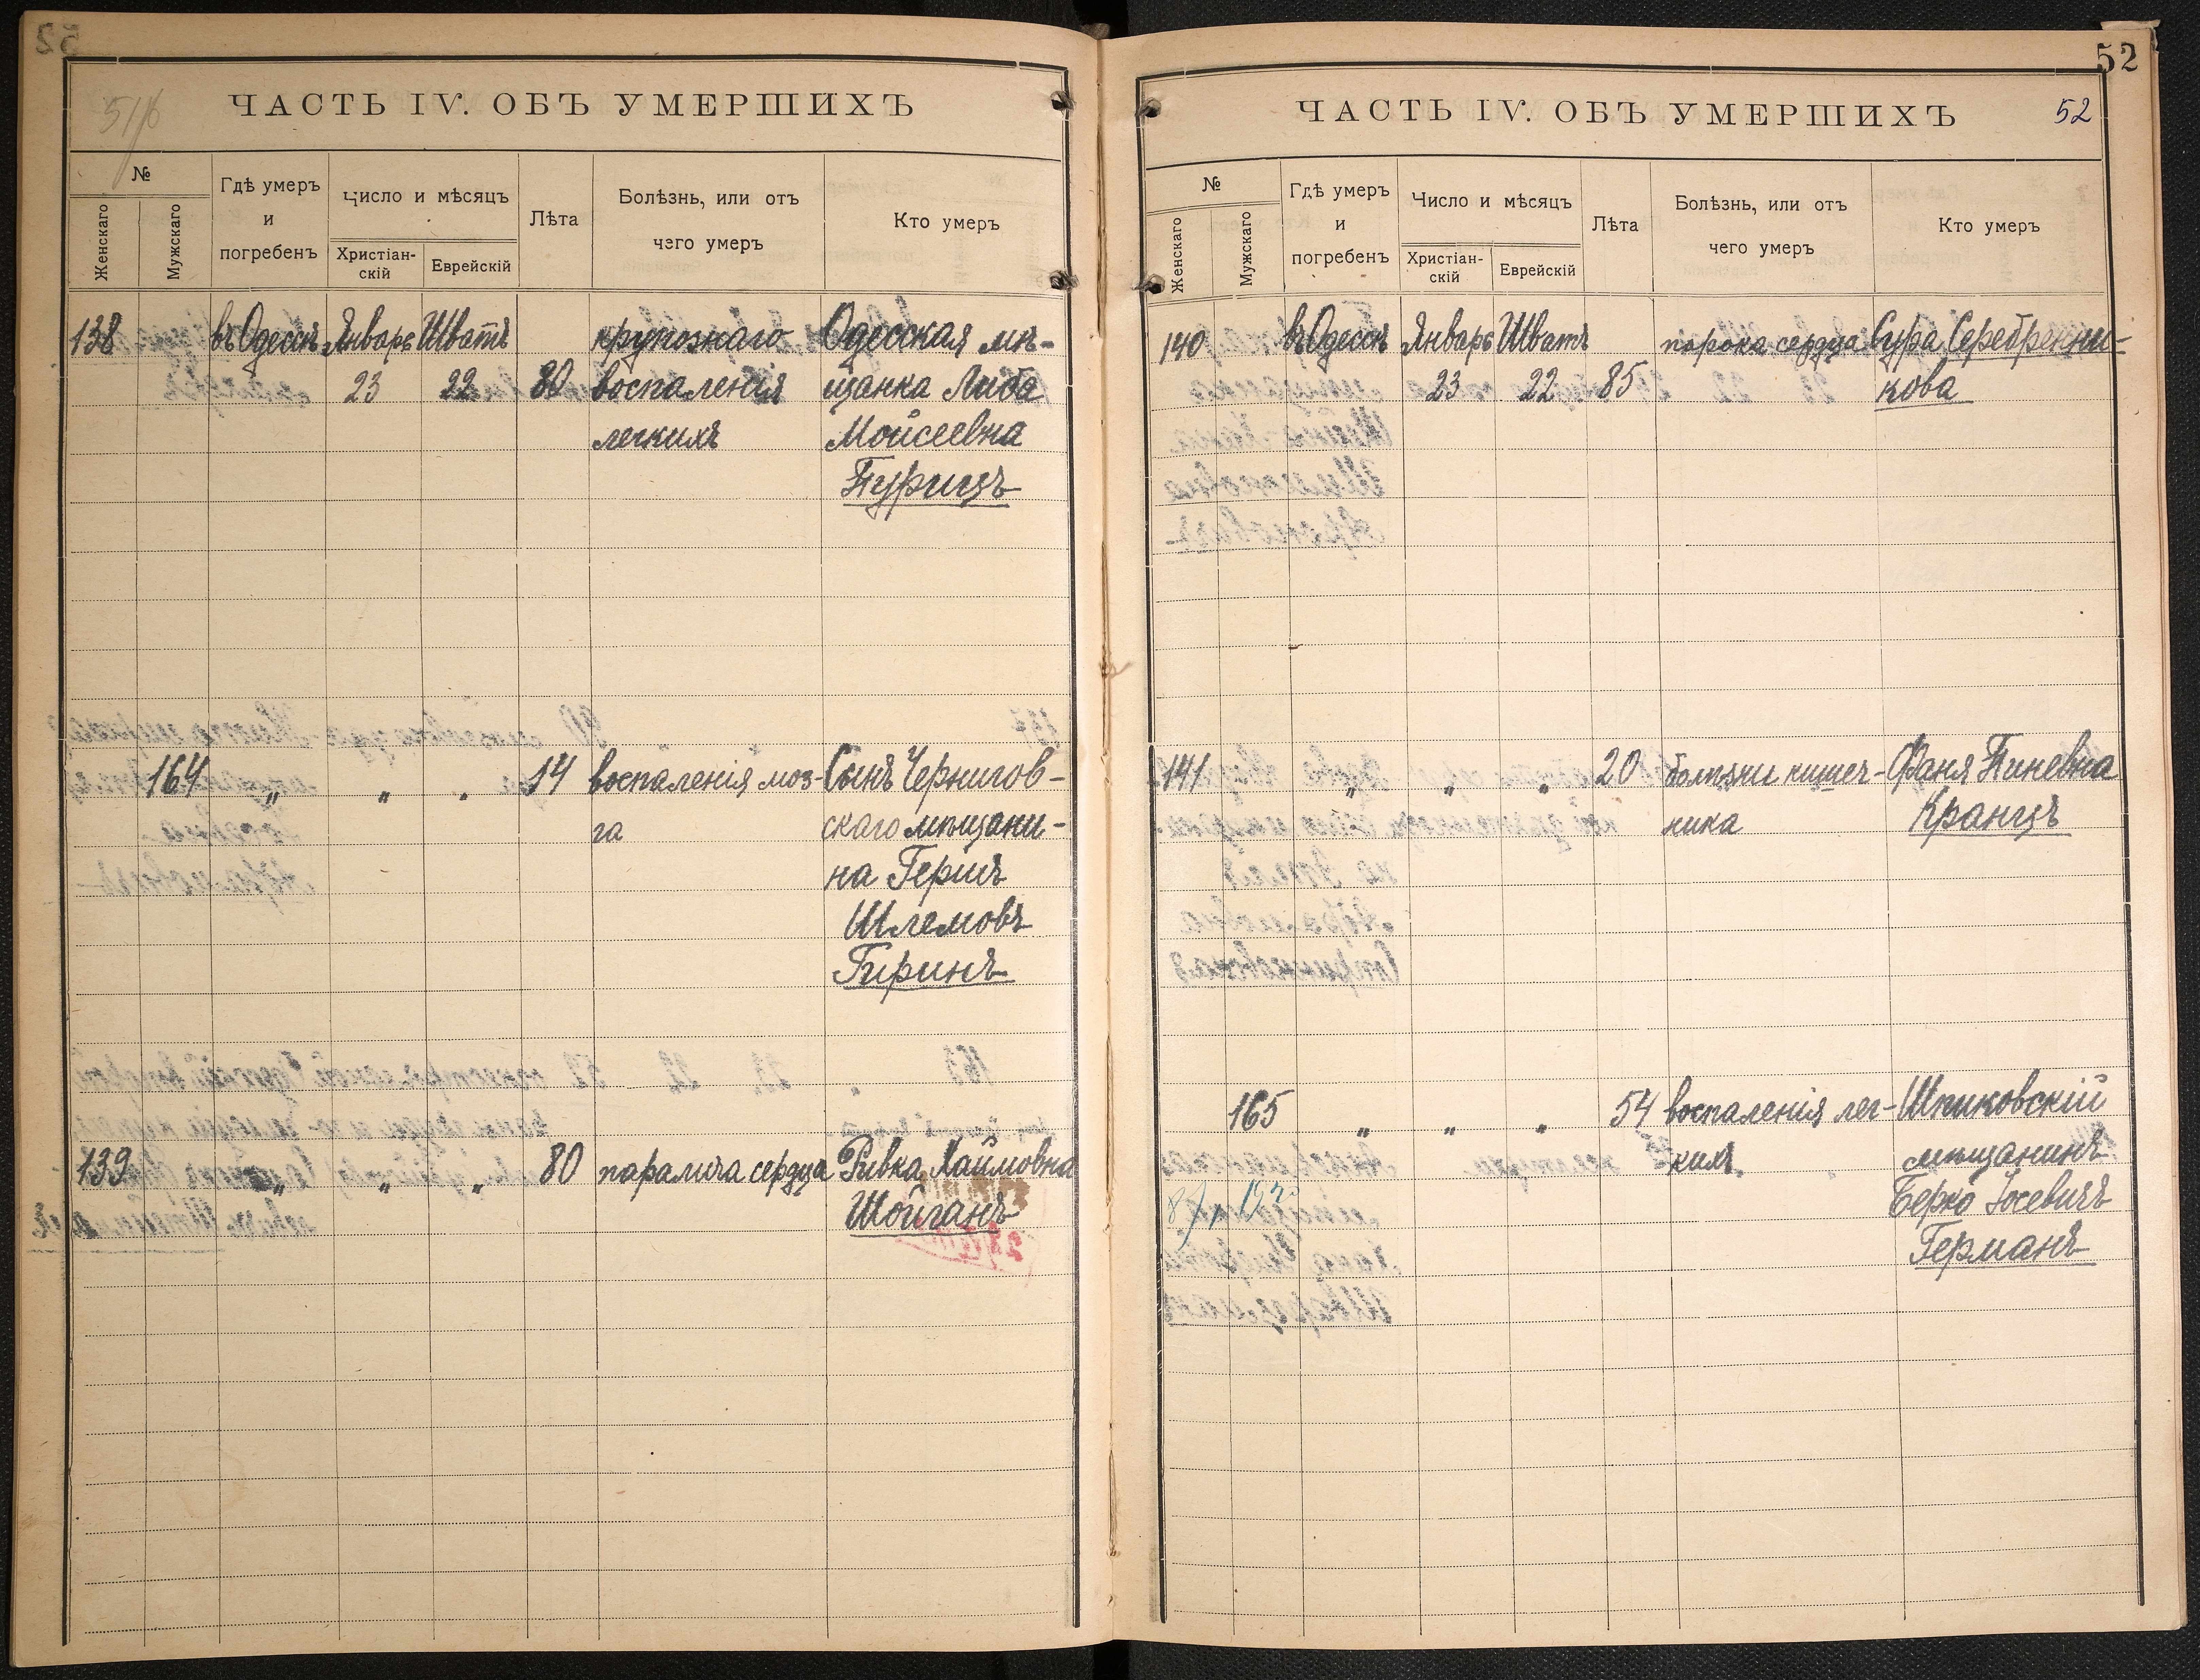 51/б
ЧАСТЬ IV. ОБЪ УМЕРШИХЪ
№
Женскаго
Мужскаго
Гдѣ умеръ
и
погребенъ
Число и мѣсяцъ
Христіан-
скій
Еврейскій
Лѣта
Болѣзнь, или отъ
чего умеръ
Кто умеръ
138 въ Одессѣ Январь Шватъ крупознаго Одесская мѣ-
23 22 80 воспаленія щанка Либа
легкихъ Мойсеевна
Пурицъ
164 „ „ „ 14 воспаленія моз- Сынъ Чернигов-
га скаго мѣщани-
на Гершъ
Шлемовъ
Гиринъ
139 „ „ „ 80 паралича сердца Ривка Хаймовна
Шойганъ
52
ЧАСТЬ IV. ОБЪ УМЕРШИХЪ 52
№
Женскаго
Мужскаго
Гдѣ умеръ
и
погребенъ
Число и мѣсяцъ
Христіан-
скій
Еврейскій
Лѣта
Болѣзнь, или отъ
чего умеръ
Кто умеръ
140 въ Одессѣ Январь Шватъ порока сердца Сура Серебренни-
23 22 85 кова
141 „ „ „ 20 болѣзни кишеч- Фаня Пиневна
ника Кранцъ
165 „ „ „ 54 воспаленія лег- Шпиковскій
кихъ мѣщанинъ
Берко Іосевичъ
Германъ